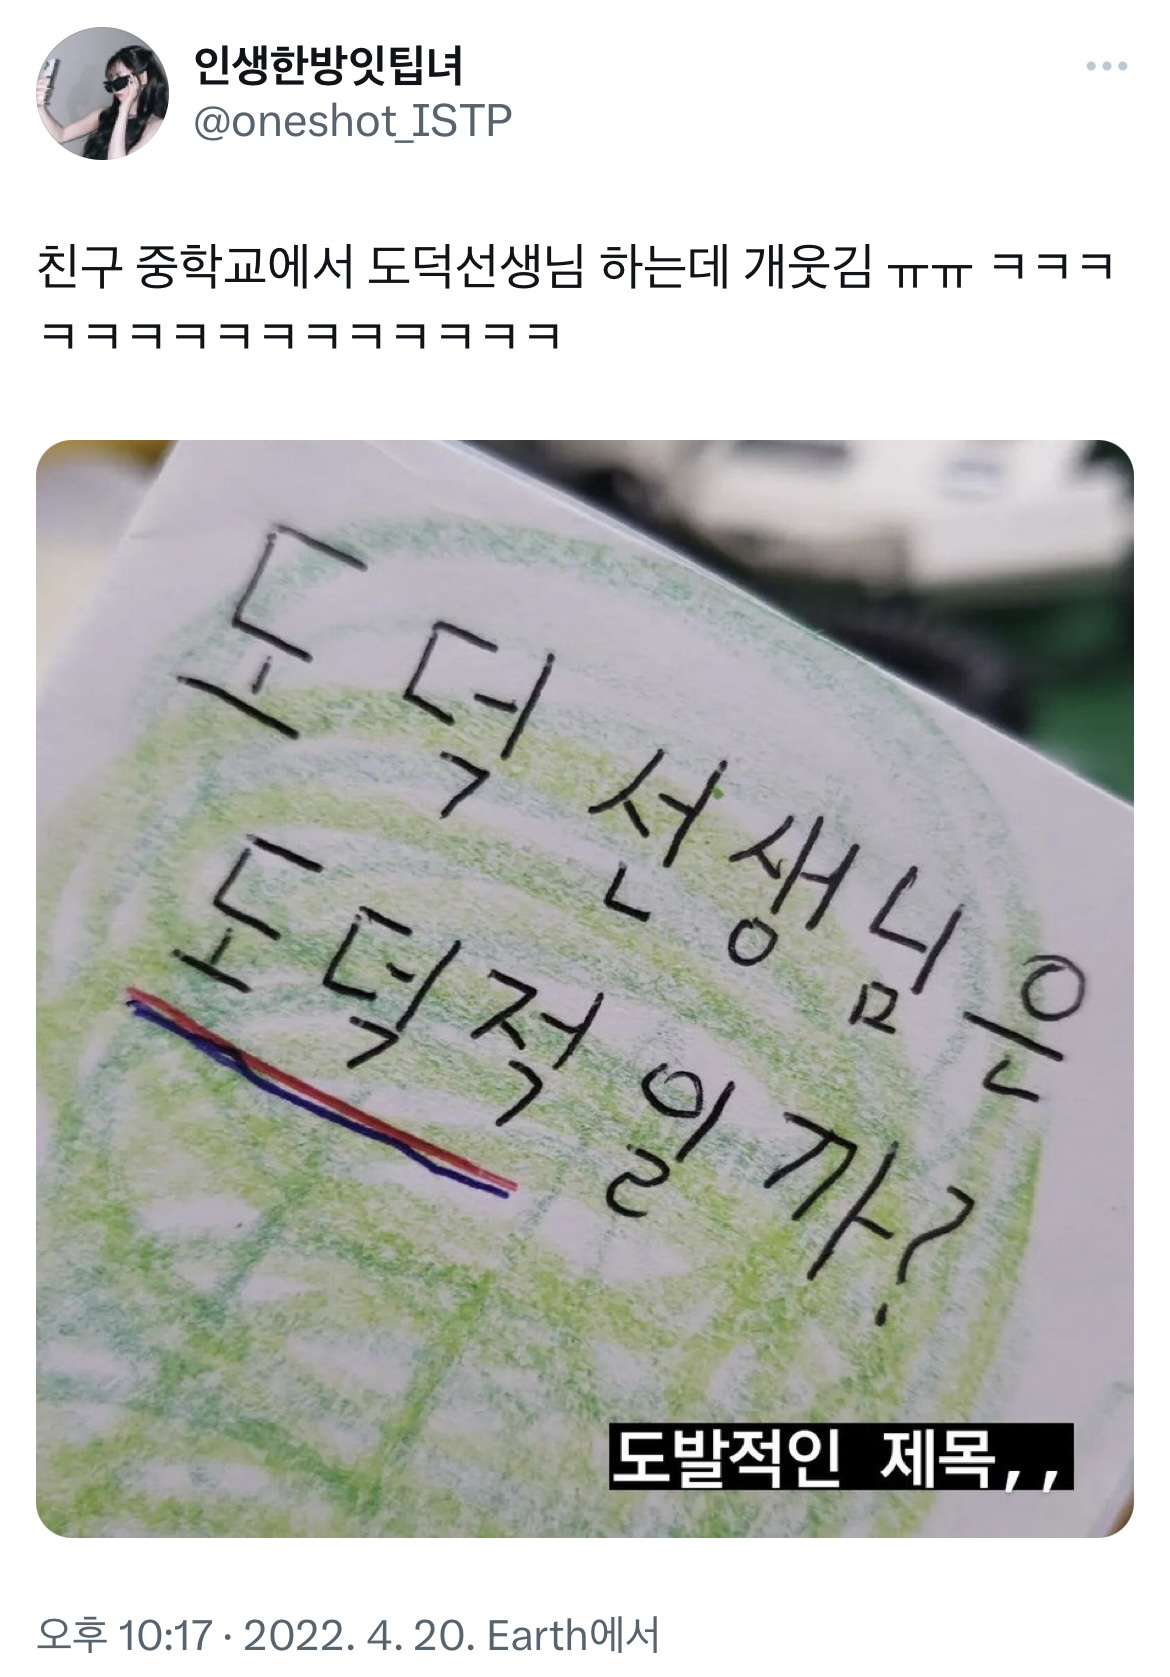 인생한방잇팁녀
@oneshot_ISTP
친구 중학교에서 도덕선생님 하는데 개웃김 ㅠㅠ ㅋㅋㅋ
ㅋㅋㅋㅋㅋㅋㅋㅋㅋㅋㅋㅋ
도덕 선생님은
도덕적일까?
도발적인 제목,,
오후 10:17 · 2022. 4. 20. Earth에서